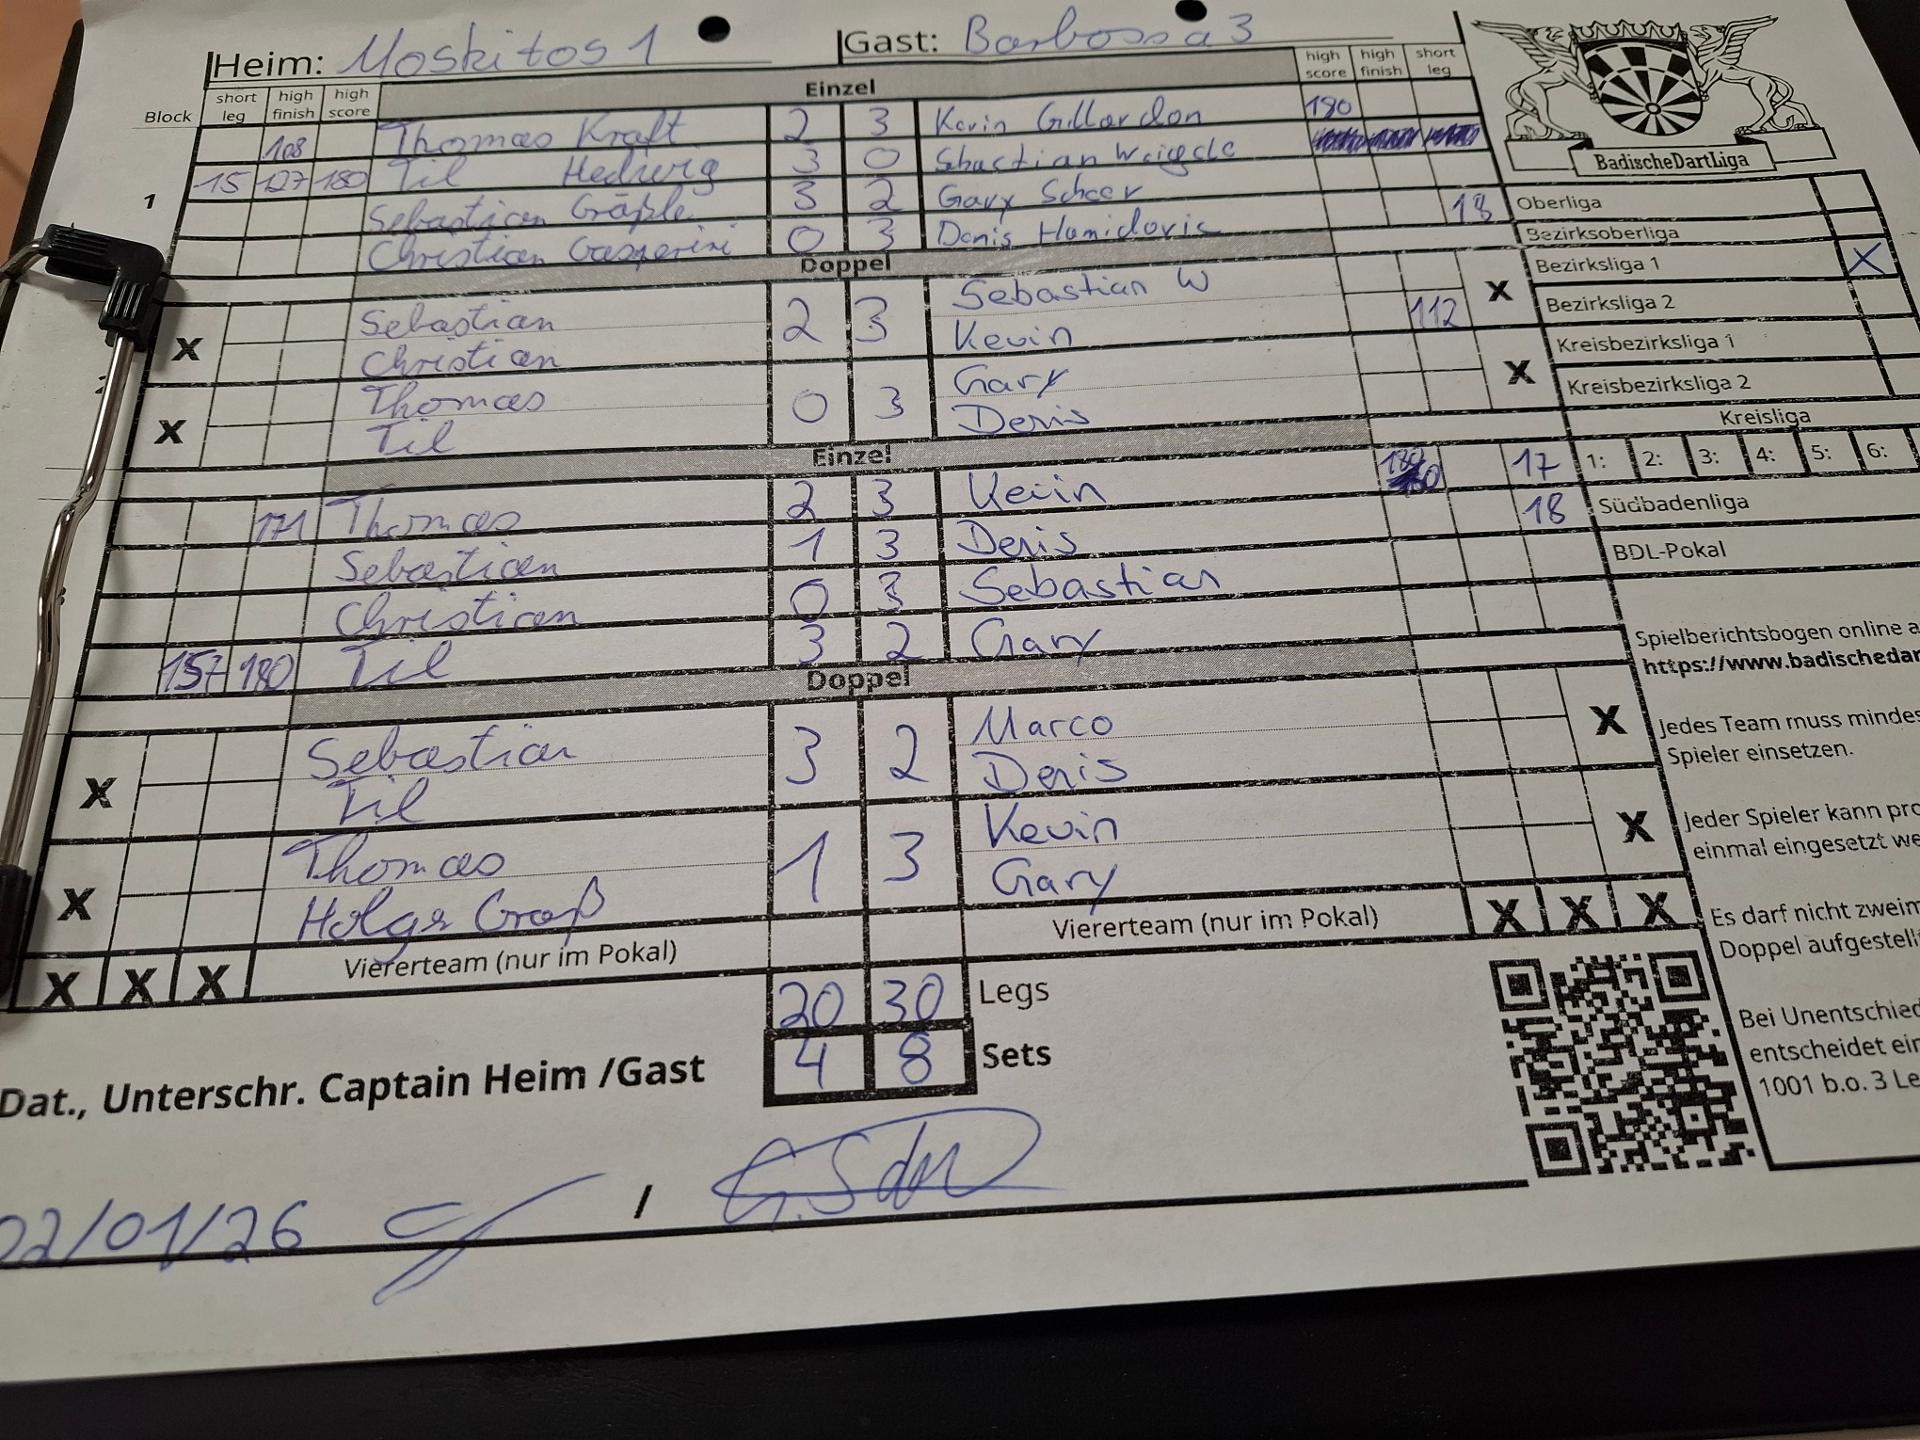 Heim: Moskitos 1 Gast: Barbossa 3
Block short leg high finish high score Einzel high score high finish short leg
108 Thomas Kraft 2 3 Kevin Gillardon 180
15 127 180 Til Hedwig 3 0 Sebastian
1 Sebastian Gräßle 3 2 Gary Scheer
Christian Gasperini 0 3 Denis Hamidovic 18
Doppel
X Sebastian 2 3 Sebastian W X
Christian Kevin 112
X Thomas 0 3 Gary X
Til Denis
Einzel
171 Thomas 2 3 Kevin 180 17
Sebastian 1 3 Denis 18
Christian 0 3 Sebastian
157 180 Til 3 2 Gary
Doppel
X Sebastian 3 2 Marco X
Til Denis
X Thomas 1 3 Kevin X
Holger Groß Gary
X X X Viererteam (nur im Pokal) Viererteam (nur im Pokal) X X X
20 30 Legs
4 8 Sets
Dat., Unterschr. Captain Heim /Gast
02/01/26 /
BadischeDartLiga
Oberliga
Bezirksoberliga
Bezirksliga 1 X
Bezirksliga 2
Kreisbezirksliga 1
Kreisbezirksliga 2
Kreisliga
1: 2: 3: 4: 5: 6:
Südbadenliga
BDL-Pokal
Spielberichtsbogen online a
https://www.badischedar
Jedes Team muss mindes
Spieler einsetzen.
Jeder Spieler kann pro
einmal eingesetzt we
Es darf nicht zweim
Doppel aufgestell
Bei Unentschied
entscheidet ein
1001 b.o. 3 Le